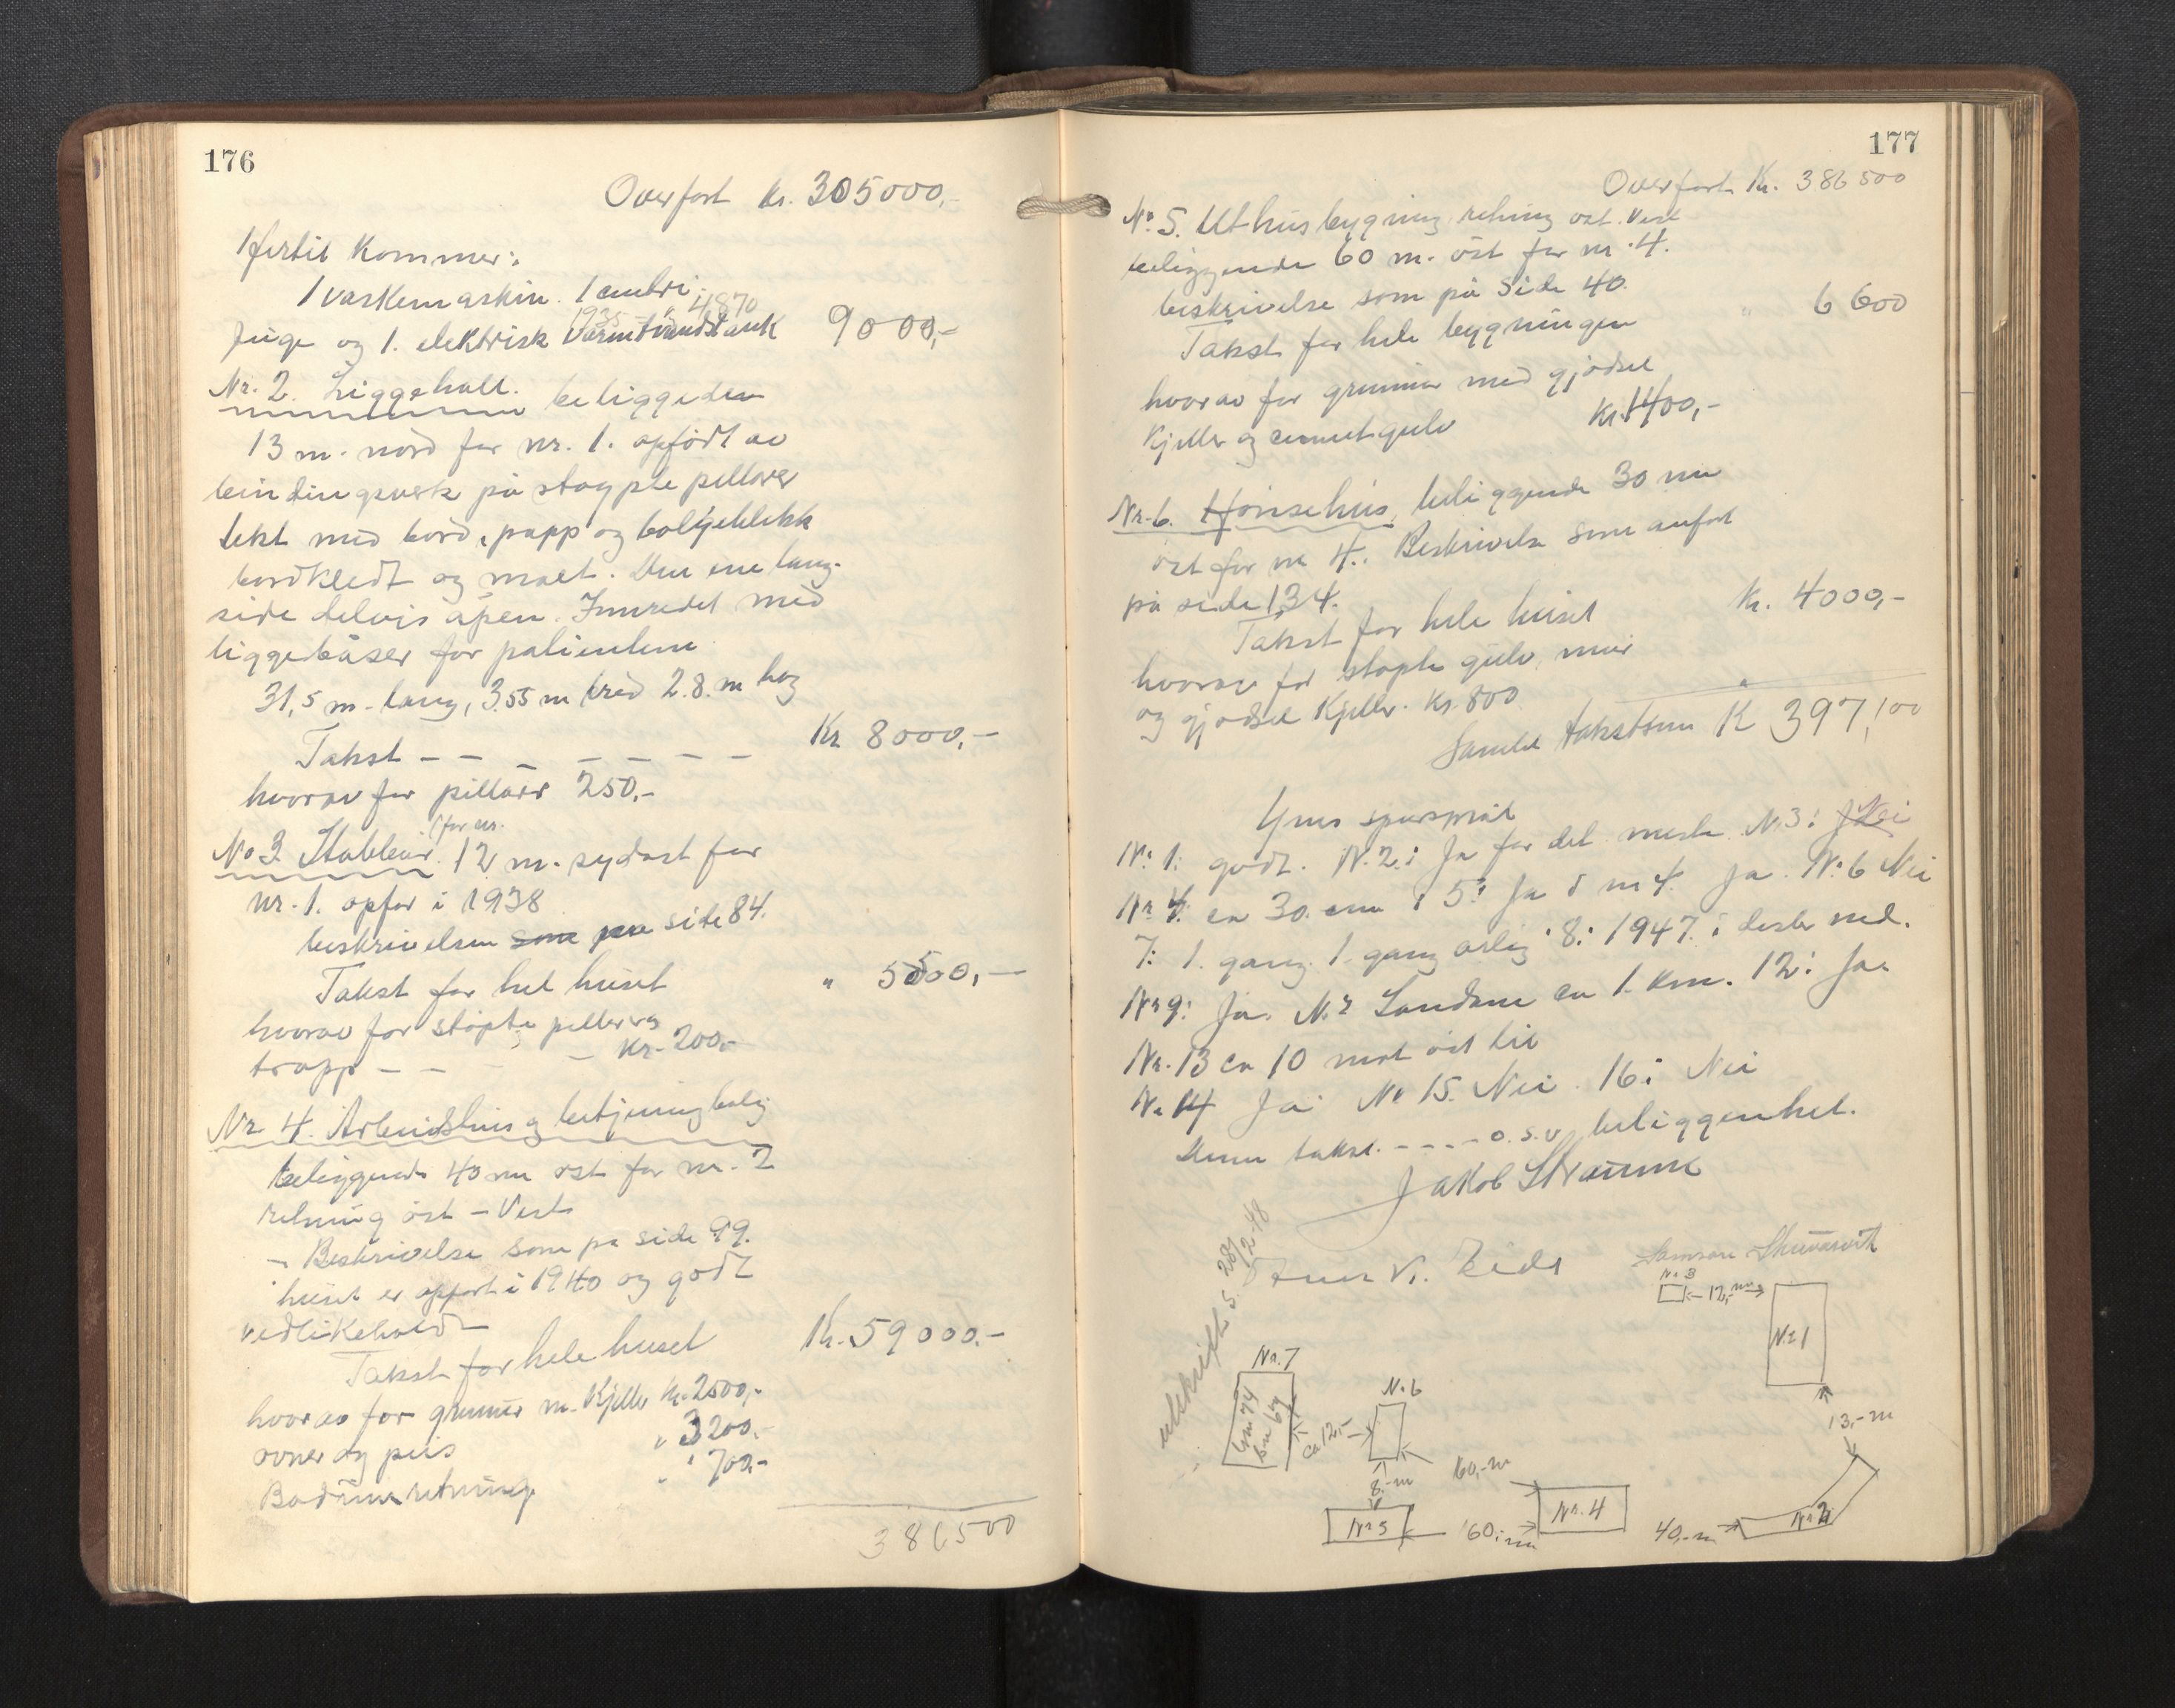 176
Overført kr. 305000,-
Hertil kommer:
1 vaskemaskin. 1 centri-
4870
fuge og 1. elektrisk Varmtvandstank 9000,-
Nr. 2. Liggehall. beliggeden
13 m. nord for nr. 1. opfødt av
bindingsverk på støypte pillarer
tekt med bord, papp og bølgeblikk
bordkledt og malt. Den ene lang-
side delvis åpen. Innredet med
liggebåser for patientene
31,5 m. lang, 3.55 m bred 2.8. m høg
Takst - - - - - - - Kr 8000,-
hvorav for pillarer 250,-
No 3 Stabbur. 12 m. sydøst for
nr. 1. opfør i 1938
beskrivelsen som på side 84.
Takst for hel huset " 5500,-
hvorav for støpte pillerer og
trapp - - - Kr. 200,-
Nr 4. Arbeidshus og betjeningbolig
beliggende 40 m øst for nr. 2
retning øst - Vest
- Beskrivelse som på side 99.
huset er opført i 1940 og godt
vedlikeholdt
Takst for hele huset Kr. 59000.-
hvorav for grunnur m. Kjeller Kr. 2500,-
ovner og peis " 3200.-
Badinnretning " 700,-
386500
177
Overført Kr. 386500
No. 5. Uthusbygning retning øst. Vest
beliggende 60 m. øst for nr. 4.
beskrivelse som på side 40.
Takst for hele bygningen " 6600
hvorav for grunnur med gjødsel
Kjeller og cementgulv Kr. 1400,-
Nr. 6. Hønsehus, beliggende 30 m
øst for nr 4. Beskrivelse som anført
på side 134.
Takst for hele huset Kr. 4000,-
hvorav for støpte gulv, mur
og gjødsel Kjeller. Kr. 800
Samlet takstsum K 397,100
Ymse spørsmål
Nr. 1: godt. N. 2: Ja for det meste N. 3: Nei
Nr 4: ca 30. cm i 5: Ja i nr 4. Ja. Nr 6 Nei
7: 1. gang. 1. gang årlig 8: 1947.
Nr 9: Ja. Nr Sandane ca 1. km. 12: Ja.
Nr. 13 ca 10 met
Nr 14 Ja. Nr 15. Nei. 16: Nei
Denne takst. - - - - o.s.v. beliggenhet.
Jakob Straume
28/2-48
Eide
Samson
Nr 3
12,-m
Nr 1
13,-m
Nr. 7
gnr 74
bnr 64
ca 12,-
Nr. 6
60,-m
8.-m
Nr 5
60,-m
Nr. 4
40,-m
Nr. 2